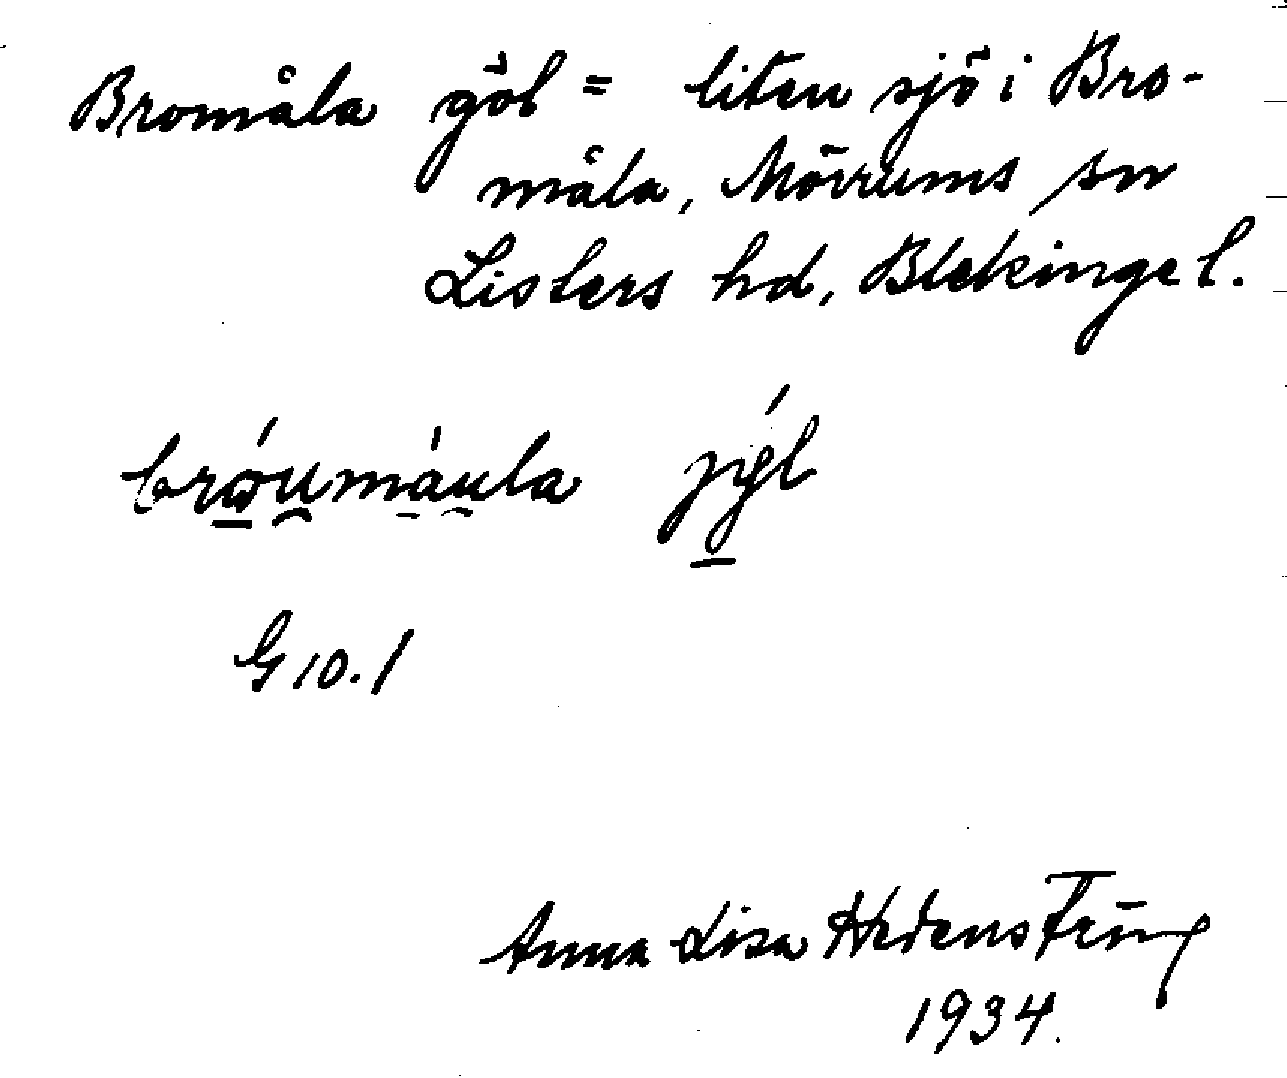 Bromåla göl = liten sjö i Bro-
måla, Mörrums sn
Listers hd, Blekinge l.
bró̱̱u̯mà̱u̯la
G 10. 1
Anna Lisa Hedenström
1934.